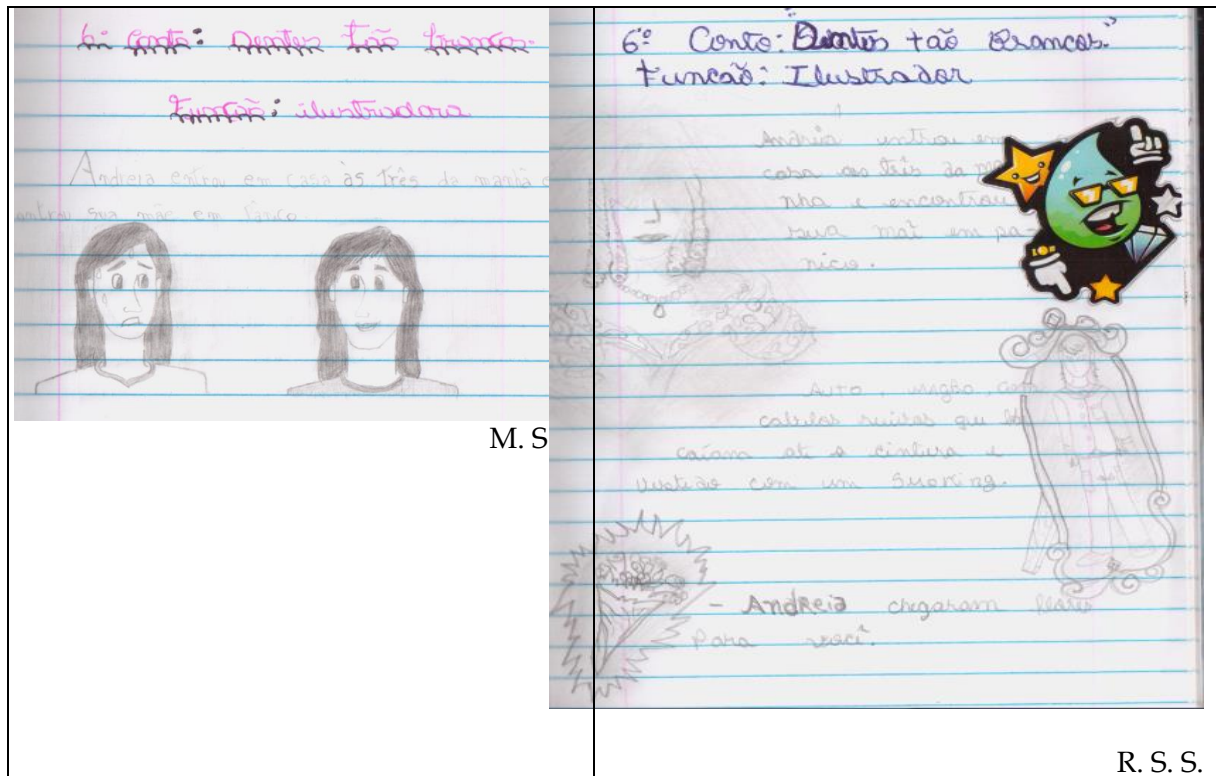 6º Conto: Dentes tão brancos.
Função: ilustradora
Andreia entrou em casa às três da manhã e
sua mãe em
M. S
6º Conto: "Dentes tão Brancos."
Função: Ilustrador
Andreia entrou em
casa as três da ma
nha e encontrou
sua mãe em pa-
nico.
Auto, com
cabelos que
caiam até a cintura e
vestido com um Smoking.
- Andreia chegaram
Para você.
R. S. S.